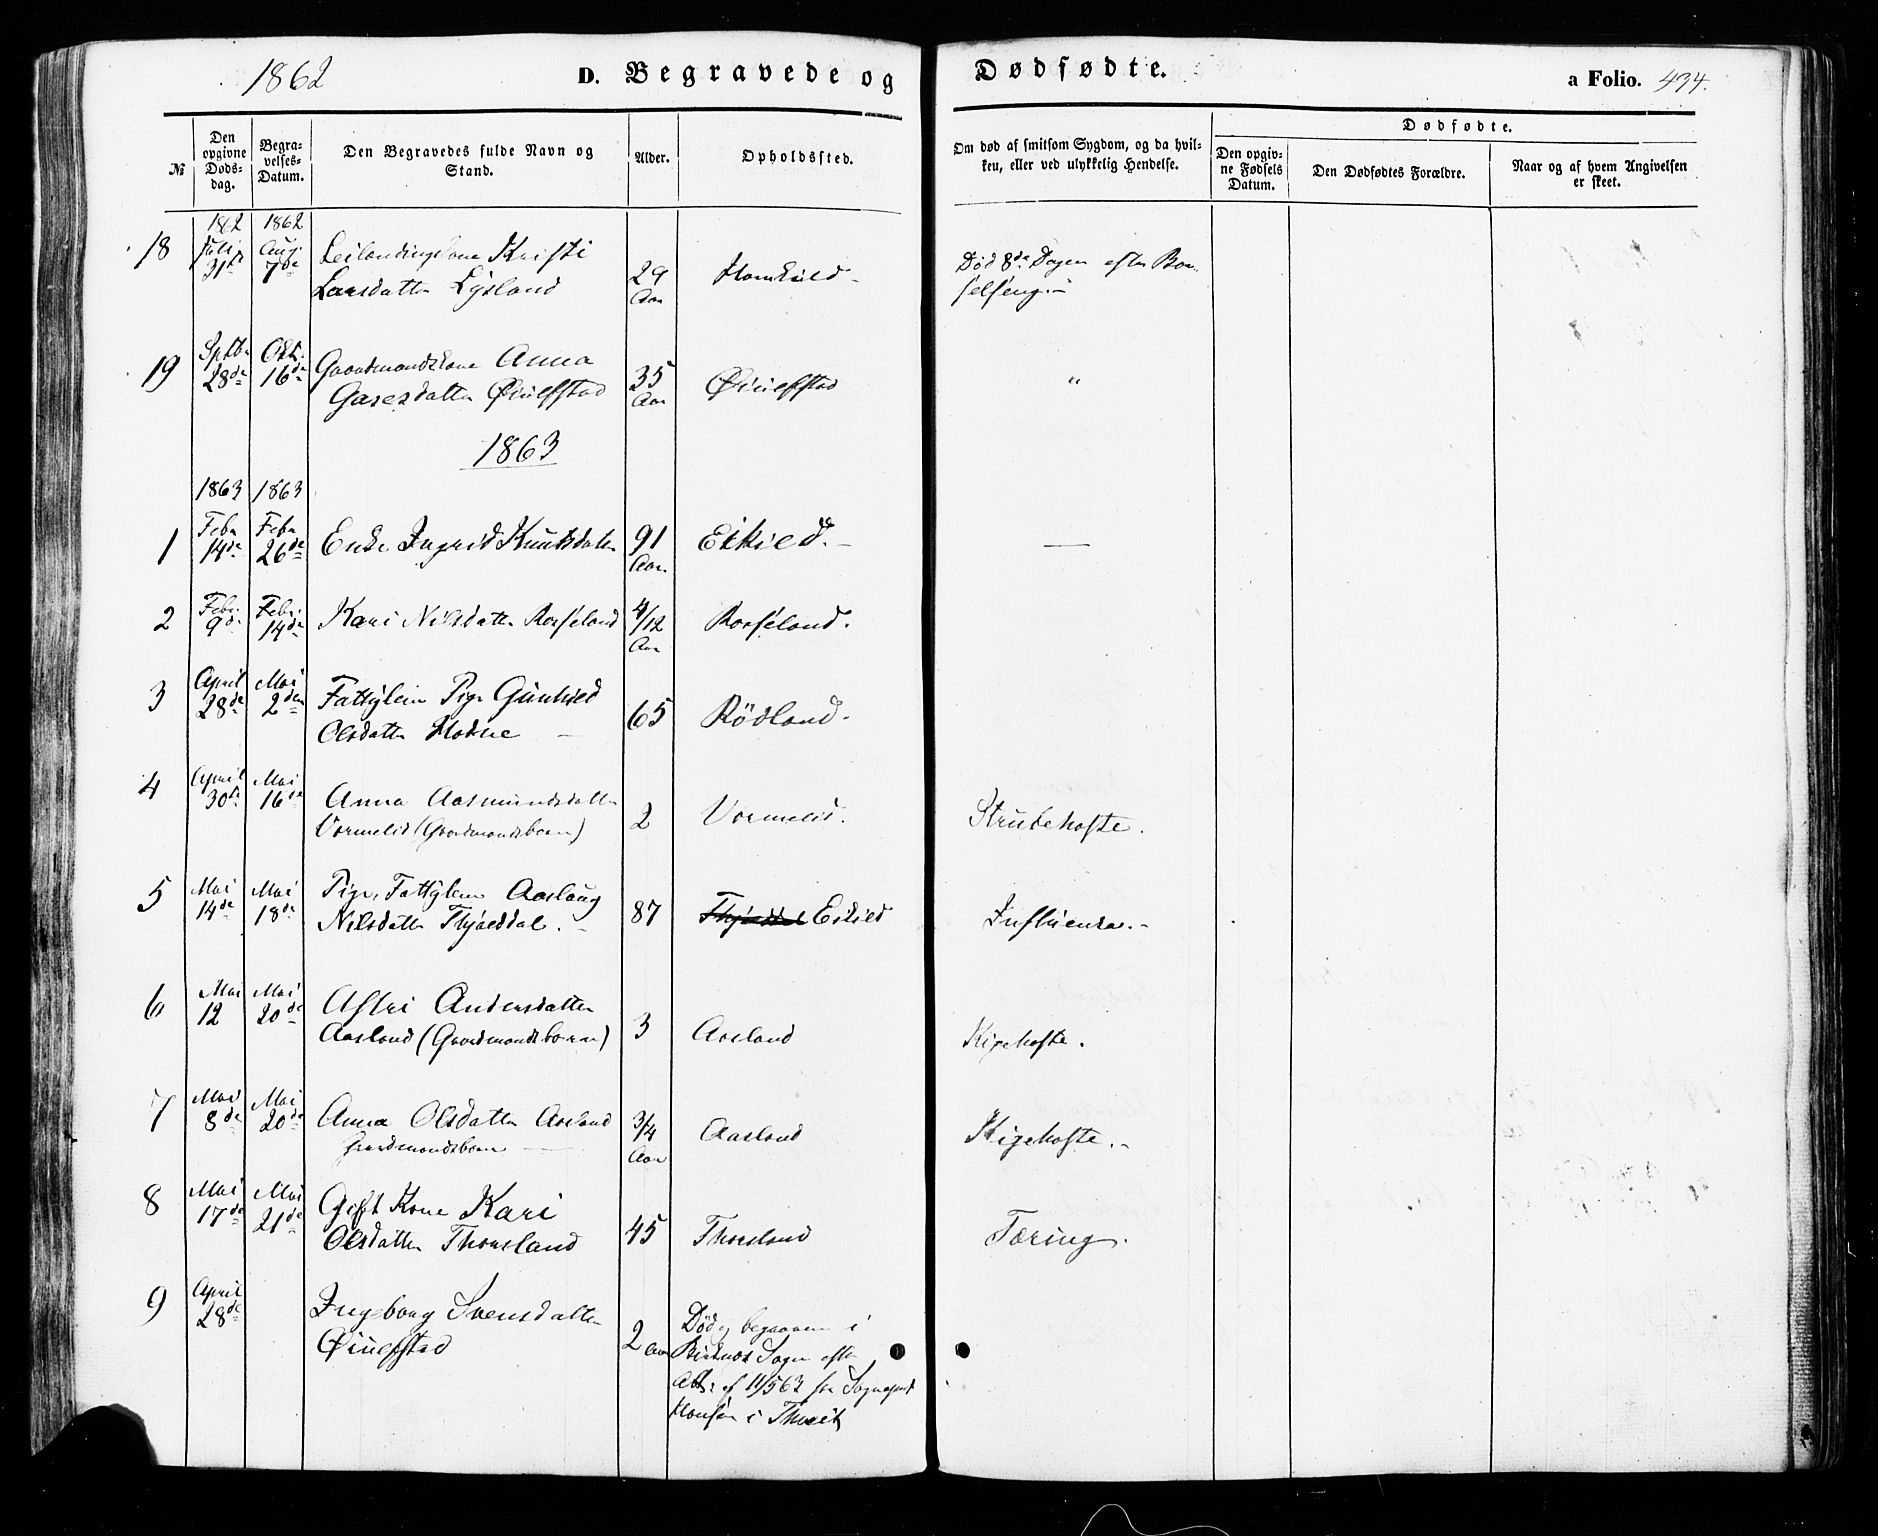 1862
D. Begravede og
Dødfødte.
a Folio. 434.
№
Den opgivne Døds-dag.
Begra-velses-Datum.
Den Begravedes fulde Navn og Stand.
Alder.
Opholdssted.
Om død af smitsom Sygdom, og da hvil-ken, eller ved ulykkelig Hendelse.
Dødfødte.
Den opgiv-ne Fødsels Datum.
Den Dødfødtes Forældre.
Naar og af hvem Angivelsen er skeet.
1862 1862
18 Juli 31te Aug. 7de Leilændingskone Kristi
Larsdatter Lysland 29 Aar Homkild - Død 8de Dagen efter Bar-
selseng. -
19 Septb. 28de Okt. 16de Gaardmandskone Anna
Garesdatter Øiulfstad 35 Aar Øiulfstad "
1863
1863 1863
1 Febr 14de Febr 26de Enke Ingrid Knutsdatter 91 Aar. Eikild. - —
2 Feb. 9de Feb. 14de Kari Nilsdatter Rosseland 4/12 Aar Rosseland.
3 April 28de Mai 2den Fattiglem Pige Gunhild
Olsdatter Hodne — 65 Rödland.
4 April 30te Mai 16de Anna Aasmundsdatter
Vormelid (Gaardmandsbarn) 2 Vormelid. Strubehoste.
5 Mai 14de Mai 18de Pige, Fattiglem Aaslaug
Nilsdatter Thjøeddal. - 87 Eikild Influenza. -
6 Mai 12 Mai 20de Astri Andersdatter
Aasland (Gaardmandsbarn) 3 Aasland Kigehoste.
7 Mai 8de Mai 20de Anna Olsdatter Aasland
Gaardmandsbarn — 3/4 Aar Aasland Kigehoste. -
8 Mai 17de Mai 21de Gift Kone Kari
Olsdatter Thorsland 45 Thorsland Tæring.
9 April 28de Ingeborg Svensdatter
Øiulfstad 2 Aar Død og begraven i
Sogn efter
Att: af 11/5 63 fra Sognepræst
Hansen i Thveit